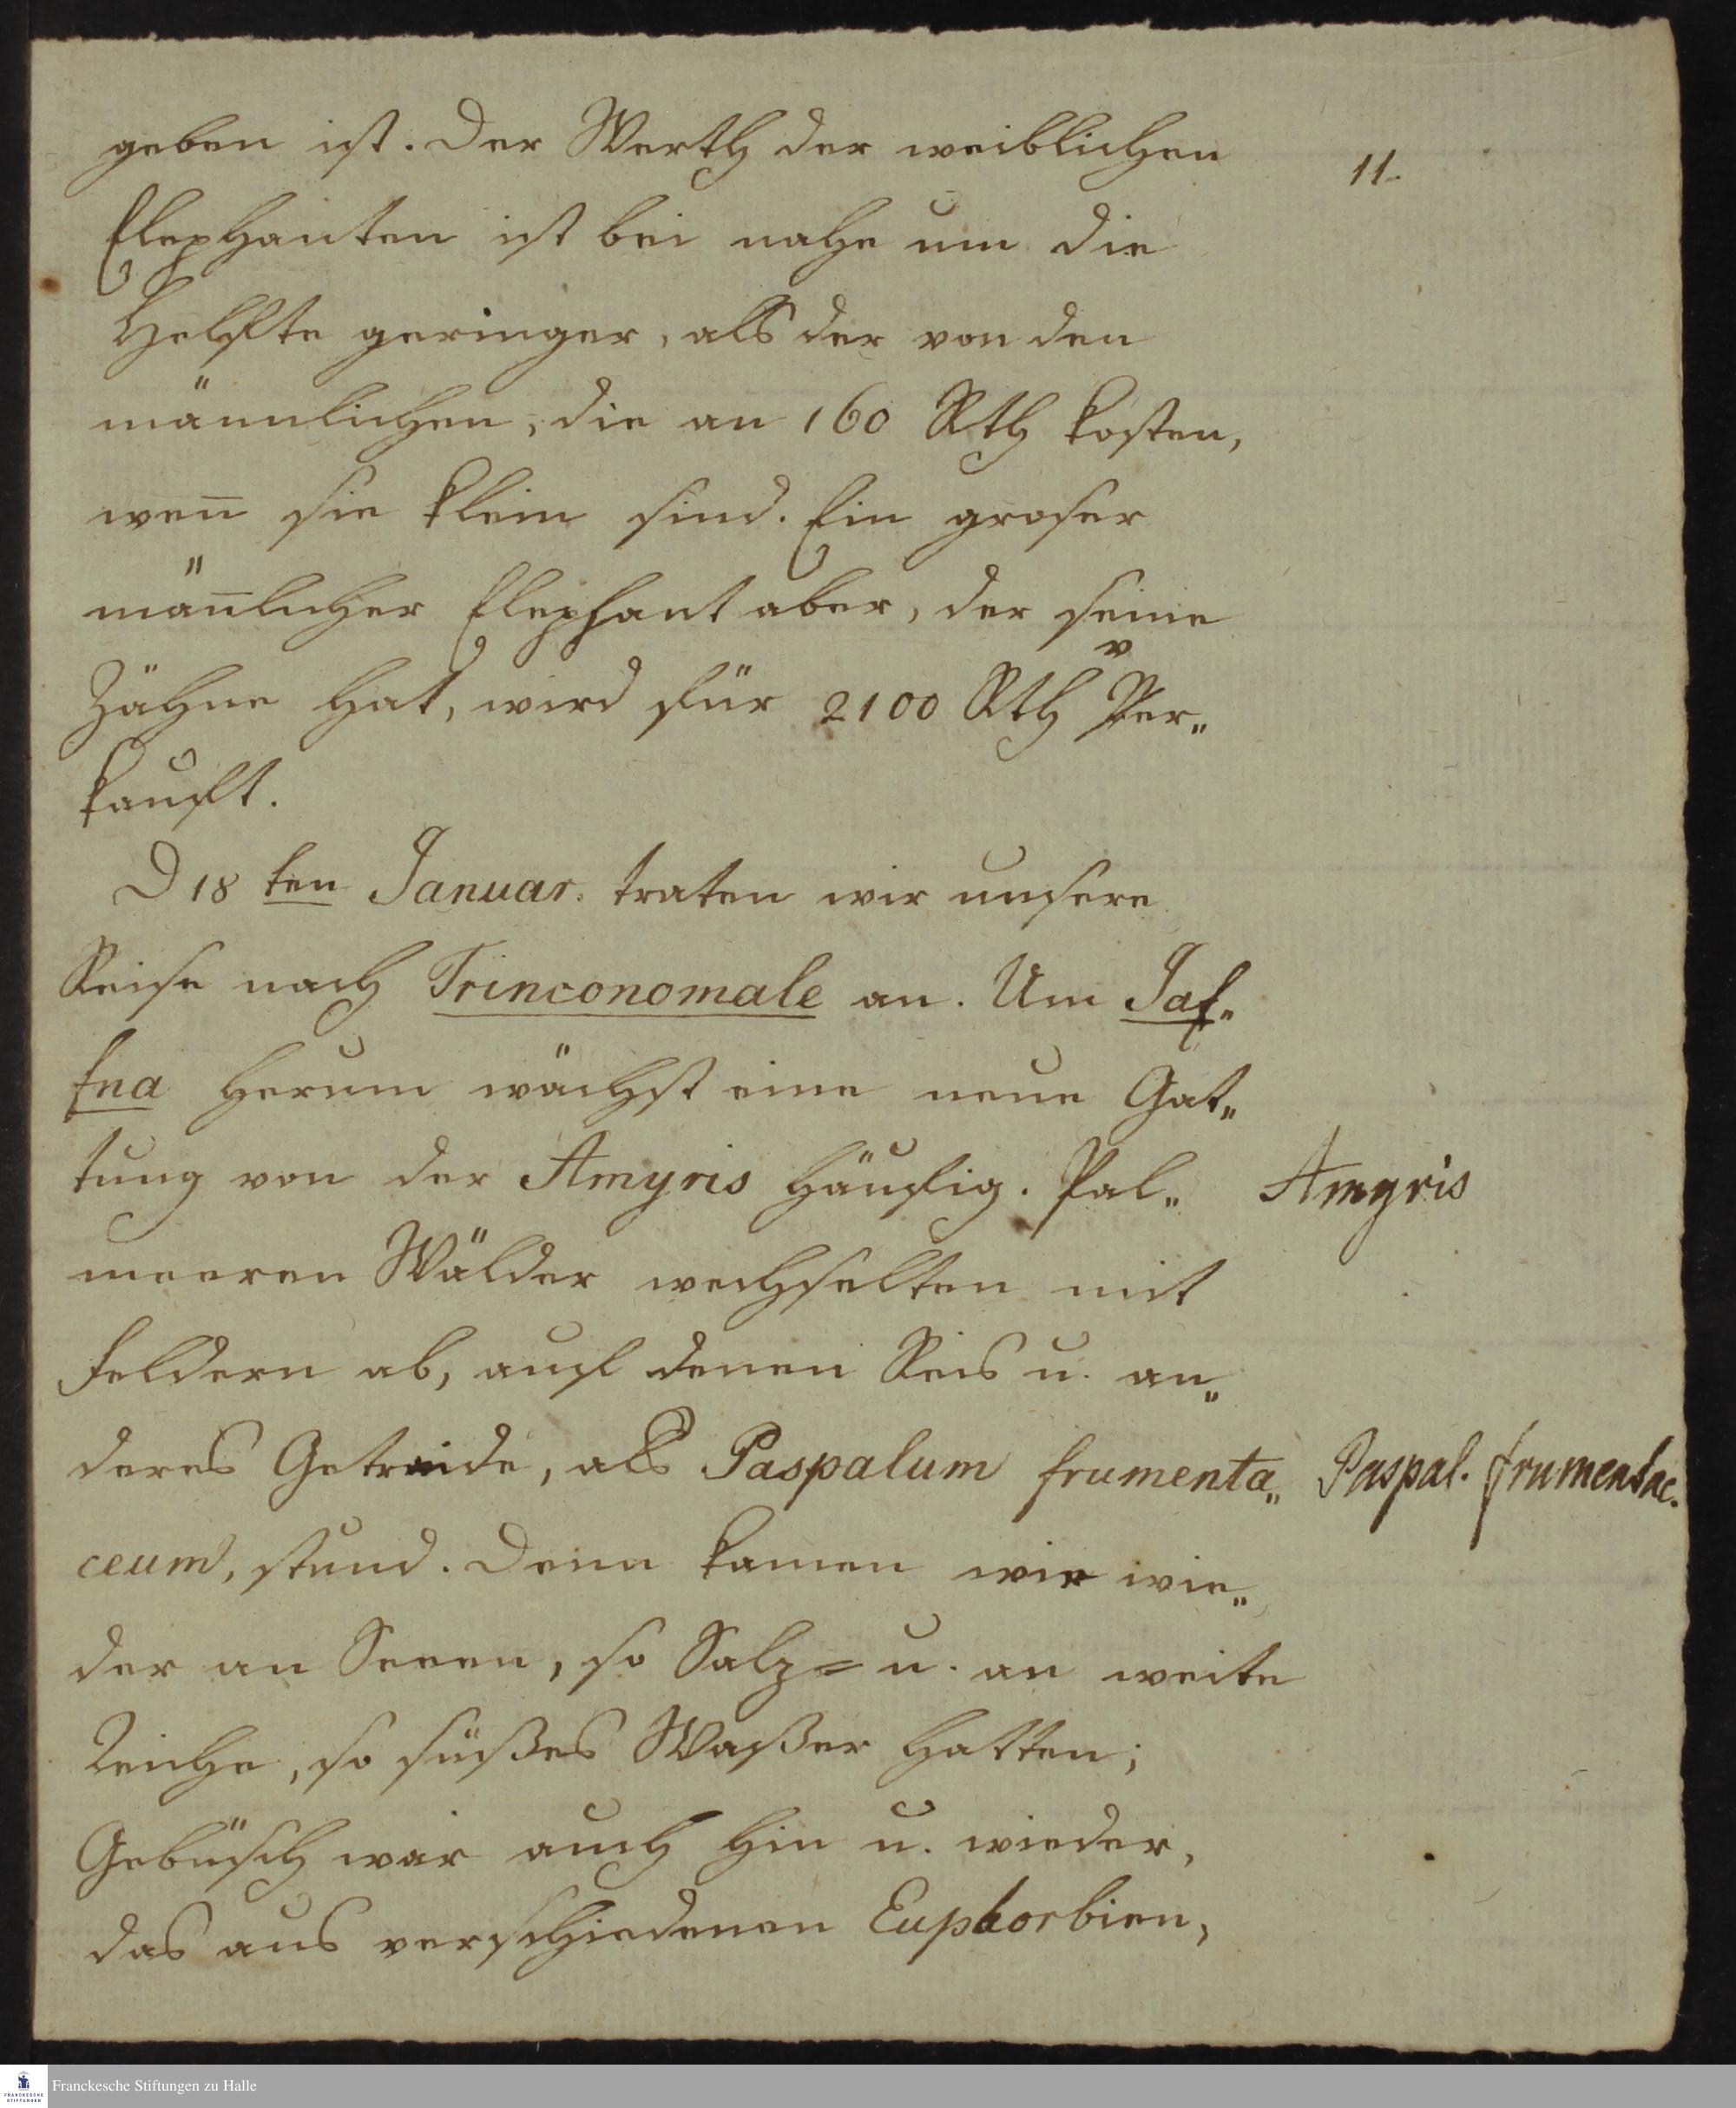 11.
geben ist. Der Werth der weiblichen
Elephanten ist bei nahe um die
Helfte geringer, als der von den
männlichen, die an 160 Rth kosten,
wen̅ sie klein sind. Ein groser
män̅licher Elephant aber, der seine
Zähne hat, wird für 2100 Rth Ver„
kauft.
D 18 ten Januar. traten wir unsere
Reise nach Trinconomale an. Um Jaf„
fna herum wächst eine neue Gat„
tung von der Amyris häufig. Pal„
Amyris
meeren Wälder wechselten mit
Feldern ab, auf denen Reis u. an„
deres Getreide, als Paspalum frumenta„
Paspal. frumentac.
ceum, stund. Denn kamen wir wie„
der an Seeen, so Salz= u. an weite
Teiche, so süßes Waßer hatten;
Gebüsch war auch hin u. wieder,
das aus verschiedenen Euphorbien,
Franckesche Stiftungen zu Halle
FRANCKESCHE
STIFTUNGEN